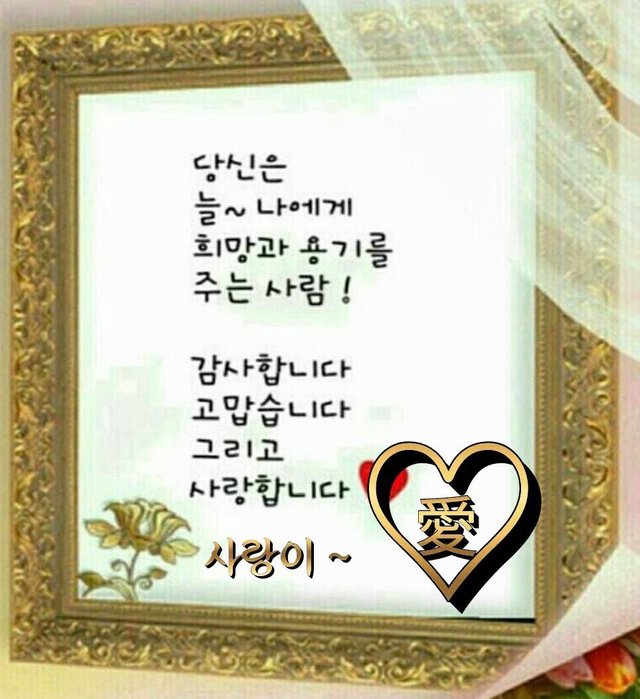 당신은
늘~ 나에게
희망과 용기를
주는 사람!
감사합니다
고맙습니다
그리고
사랑합니다
사랑이 ~
愛